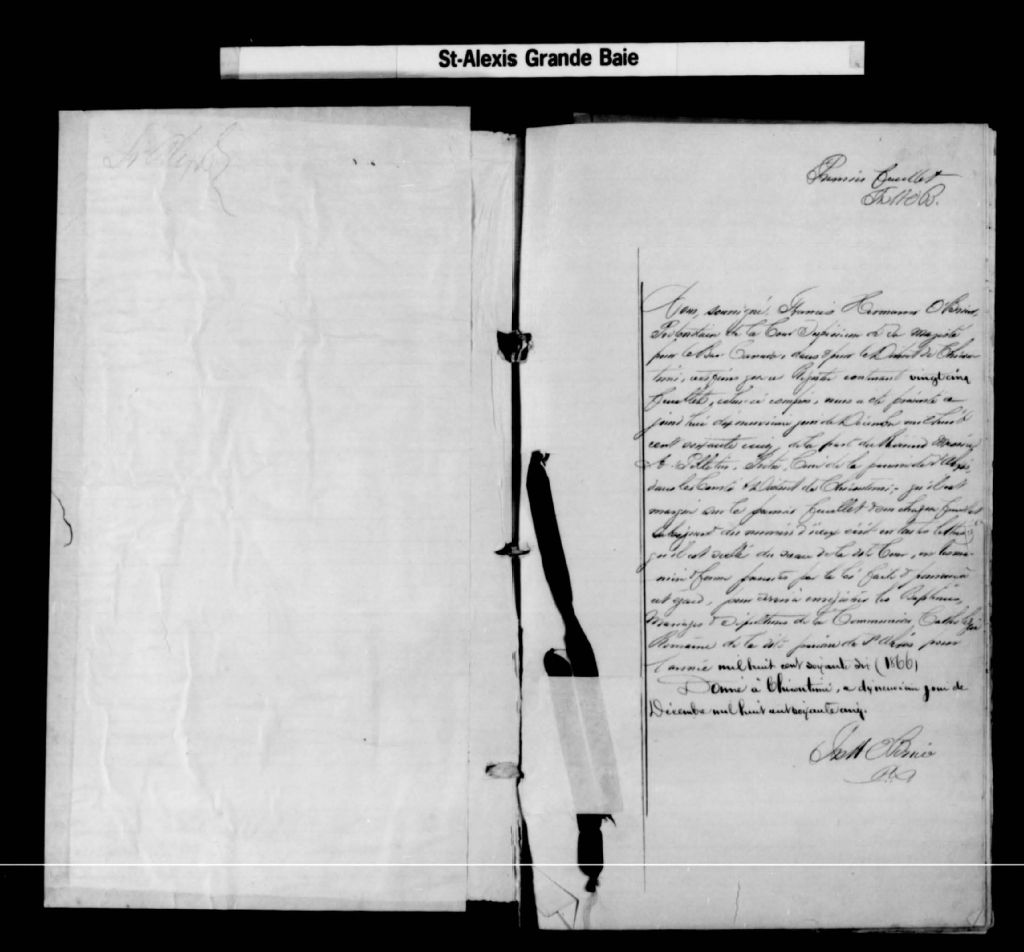 St-Alexis Grande Baie
St Alexis
Premier feuillet
FxHOB.
Nous, soussigné, Francis Hermann O'Brien,
Protonotaire de la Cour Supérieure
pour le Bas Canada, dans & pour le District de Chicou-
timi, certifions que ce Registre contenant vingt cinq
feuillets, celui-ci compris, nous a été présenté ce
jourd'hui dix neuvième jour de Décembre mil huit
cent soixante cinq, de la part du Révérend Messire
A. Pelletier, Ptre, Curé de la paroisse de St Alexis,
dans le Comté & District de Chicoutimi; qu'il est
marqué sur le premier feuillet & sur chaque feuillet
subséquent du numéro d'iceux écrit en toutes lettres,
qu'il est scellé du sceau de la dite Cour, en la ma-
nière & forme prescrites par la loi faite & pourvue à
cet égard, pour servir à enregistrer les Baptêmes,
Mariages & Sépultures de la Communion Catholique
Romaine de la dite paroisse de St Alexis pour
l'année mil huit cent soixante six (1866)
Donné à Chicoutimi, ce dix neuvième jour de
Décembre mil huit cent soixante cinq.
FxH OBrien